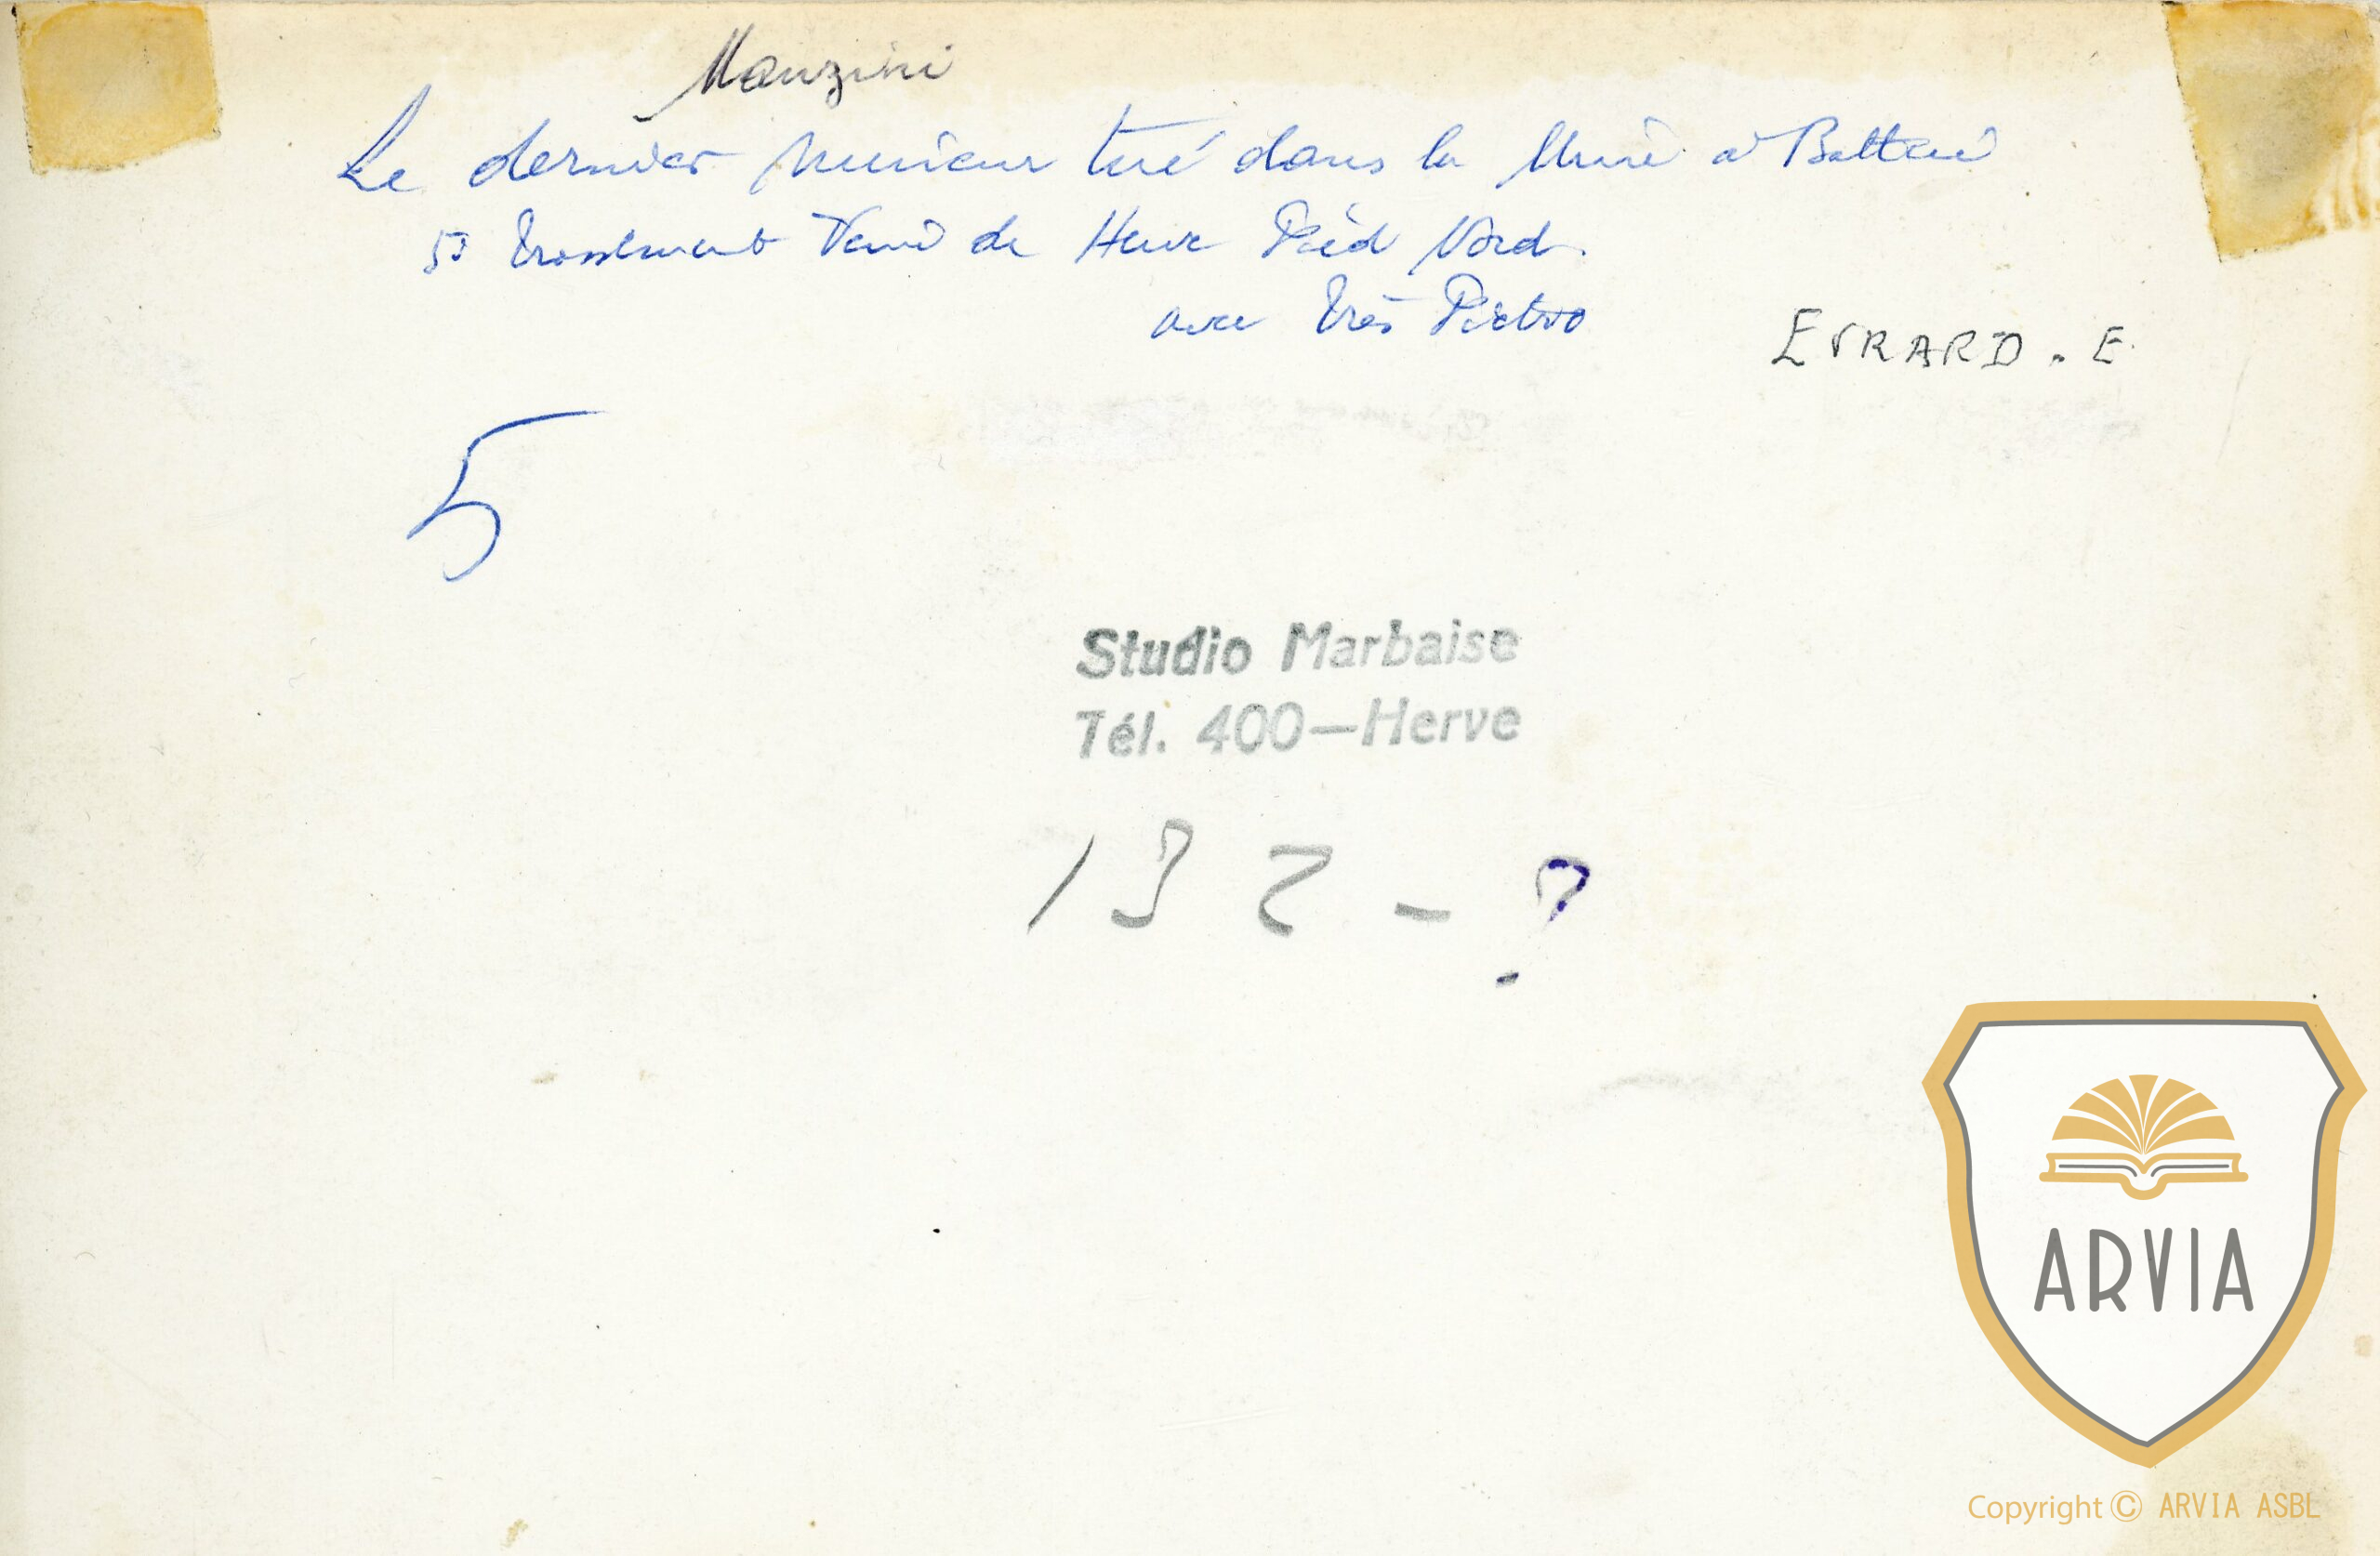 Manzini
Le dernier mineur tué dans la Mine à Battice
53 Veine de Herve Pied Nord.
avec Très Pietro
EVRARD. E.
5
Studio Marbaise
Tél. 400—Herve
132 - ?
ARVIA
Copyright © ARVIA ASBL